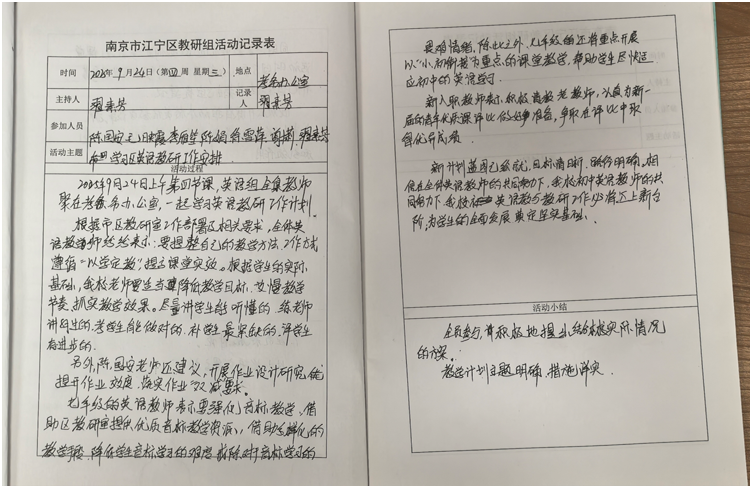 南京市江宁区教研组活动记录表
时间 2025年9月24日(第四周 星期三) 地点 老备办公室
主持人 翟来芳 记录人 翟来芳
参加人员 陈国安
活动主题 学习区英语教研工作安排
活动过程
2025年9月24日上午第四节课,英语组全集教师
聚在老备办公室,一起学习英语教研工作计划。
根据市区教研室工作部署及相关要求,全体英
语教师纷纷表示:要调整自己的教学方法、工作方式
遵循“以学定教”提高课堂实效。根据学生的实际
基础,我校老师要适当降低教学目标,放慢教学
节奏,抓实教学效果。尽量讲学生能听懂的,练老师
讲到的,考学生能做对的,补学生最最缺的,评学生
有进步的。
另外,陈国安老师还建议,开展作业设计研究,优
提升作业效度,落实作业“双减”要求。
七年级的英语教师表示要强化音标教学,借
助区教研室提供优质音标教学资源,借助多样化的
教学手段,降低学生音标学习的难度,消除对音标学习的
畏难情绪。除此之外,七年级组还将重点开展
以“小初衔接”为重点的课堂教学,帮助学生尽快适
应初中的英语学习。
新入职教师表示,积极请教老教师,认真为新一
届的青年优质课评比做好准备,争取在评比中取
得优异成绩。
新计划蓝图已经绘就,目标清晰、路径明确。相
信在全体英语教师的共同努力下,我校初中英语教师的共
同努力下,我校英语教学与教研工作必将迈上新台
阶,为学生的全面发展奠定坚实基础。
活动小结
全员参与,并积极地提出结合本校实际情况
的方案。
教学计划主题明确,措施详实